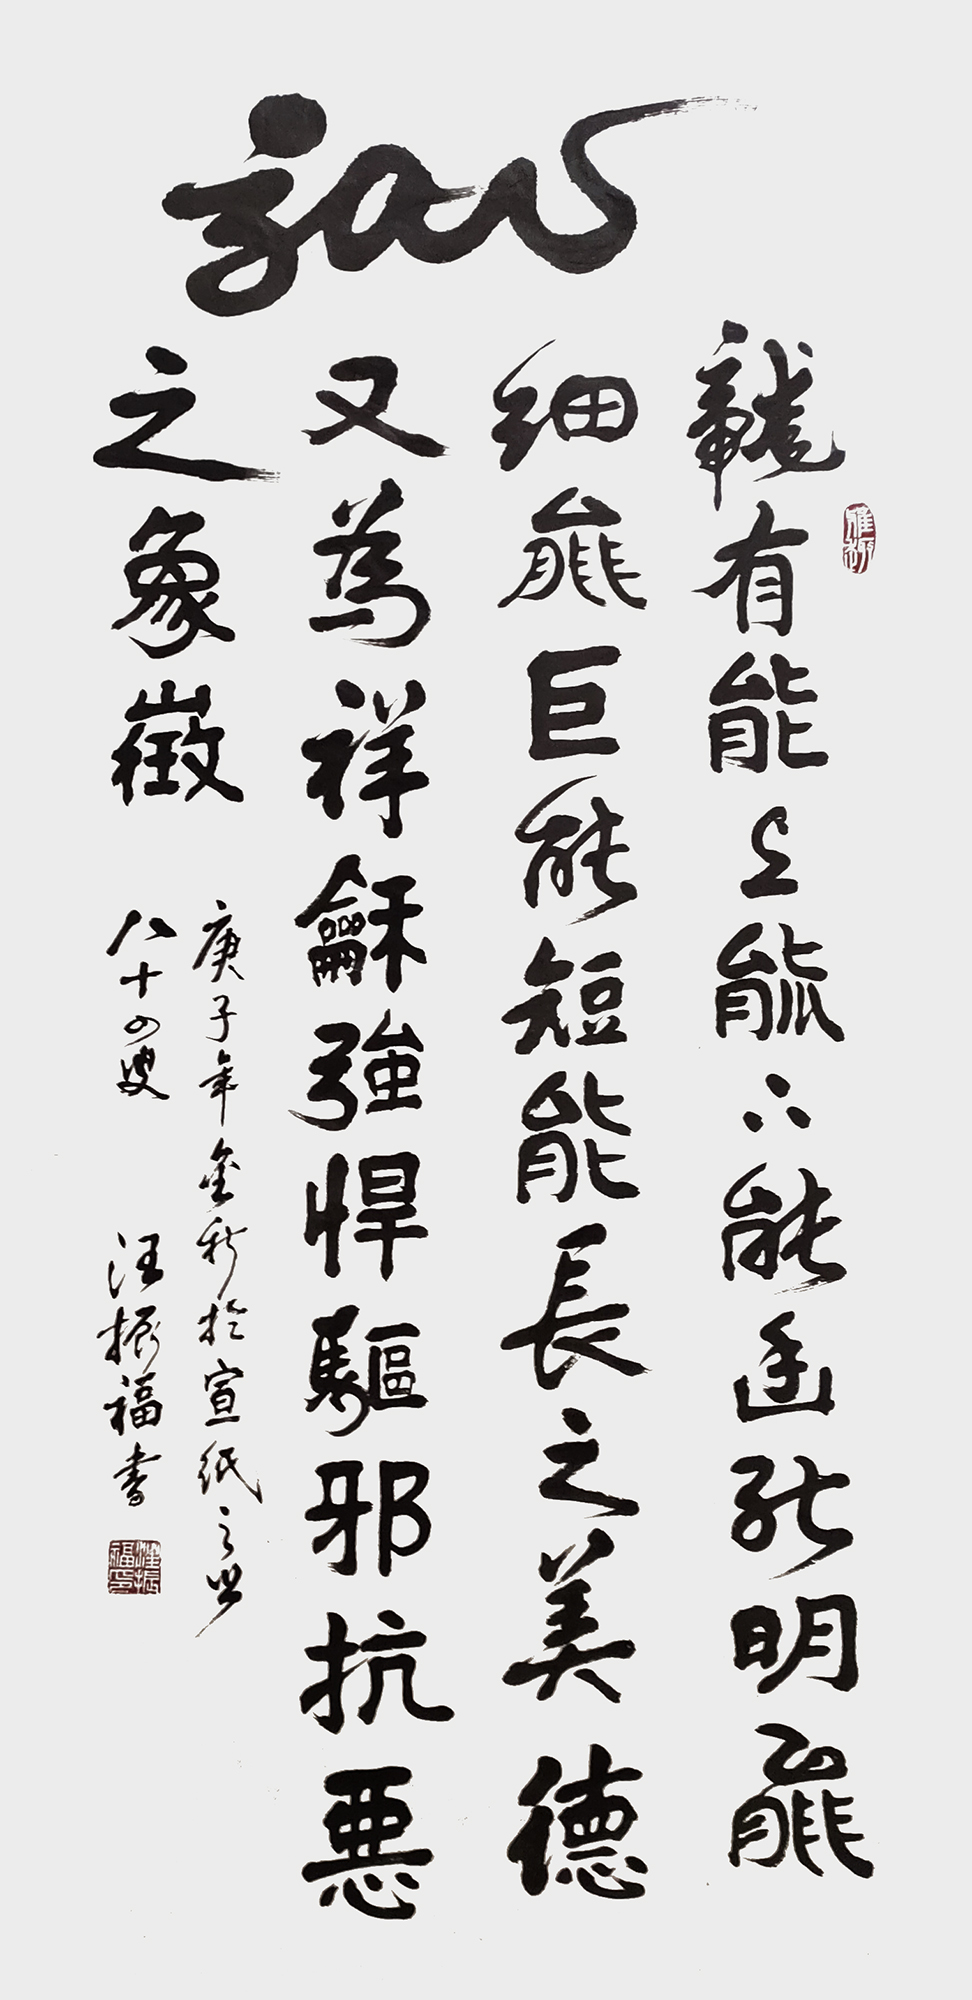 龍
龍有能上能下能幽能明能
細能巨能短能長之美德
又為祥龢強悍驅邪抗惡
之象徵
庚子年金秋於宣紙之鄉
八十四叟 汪振福書
汪振福印